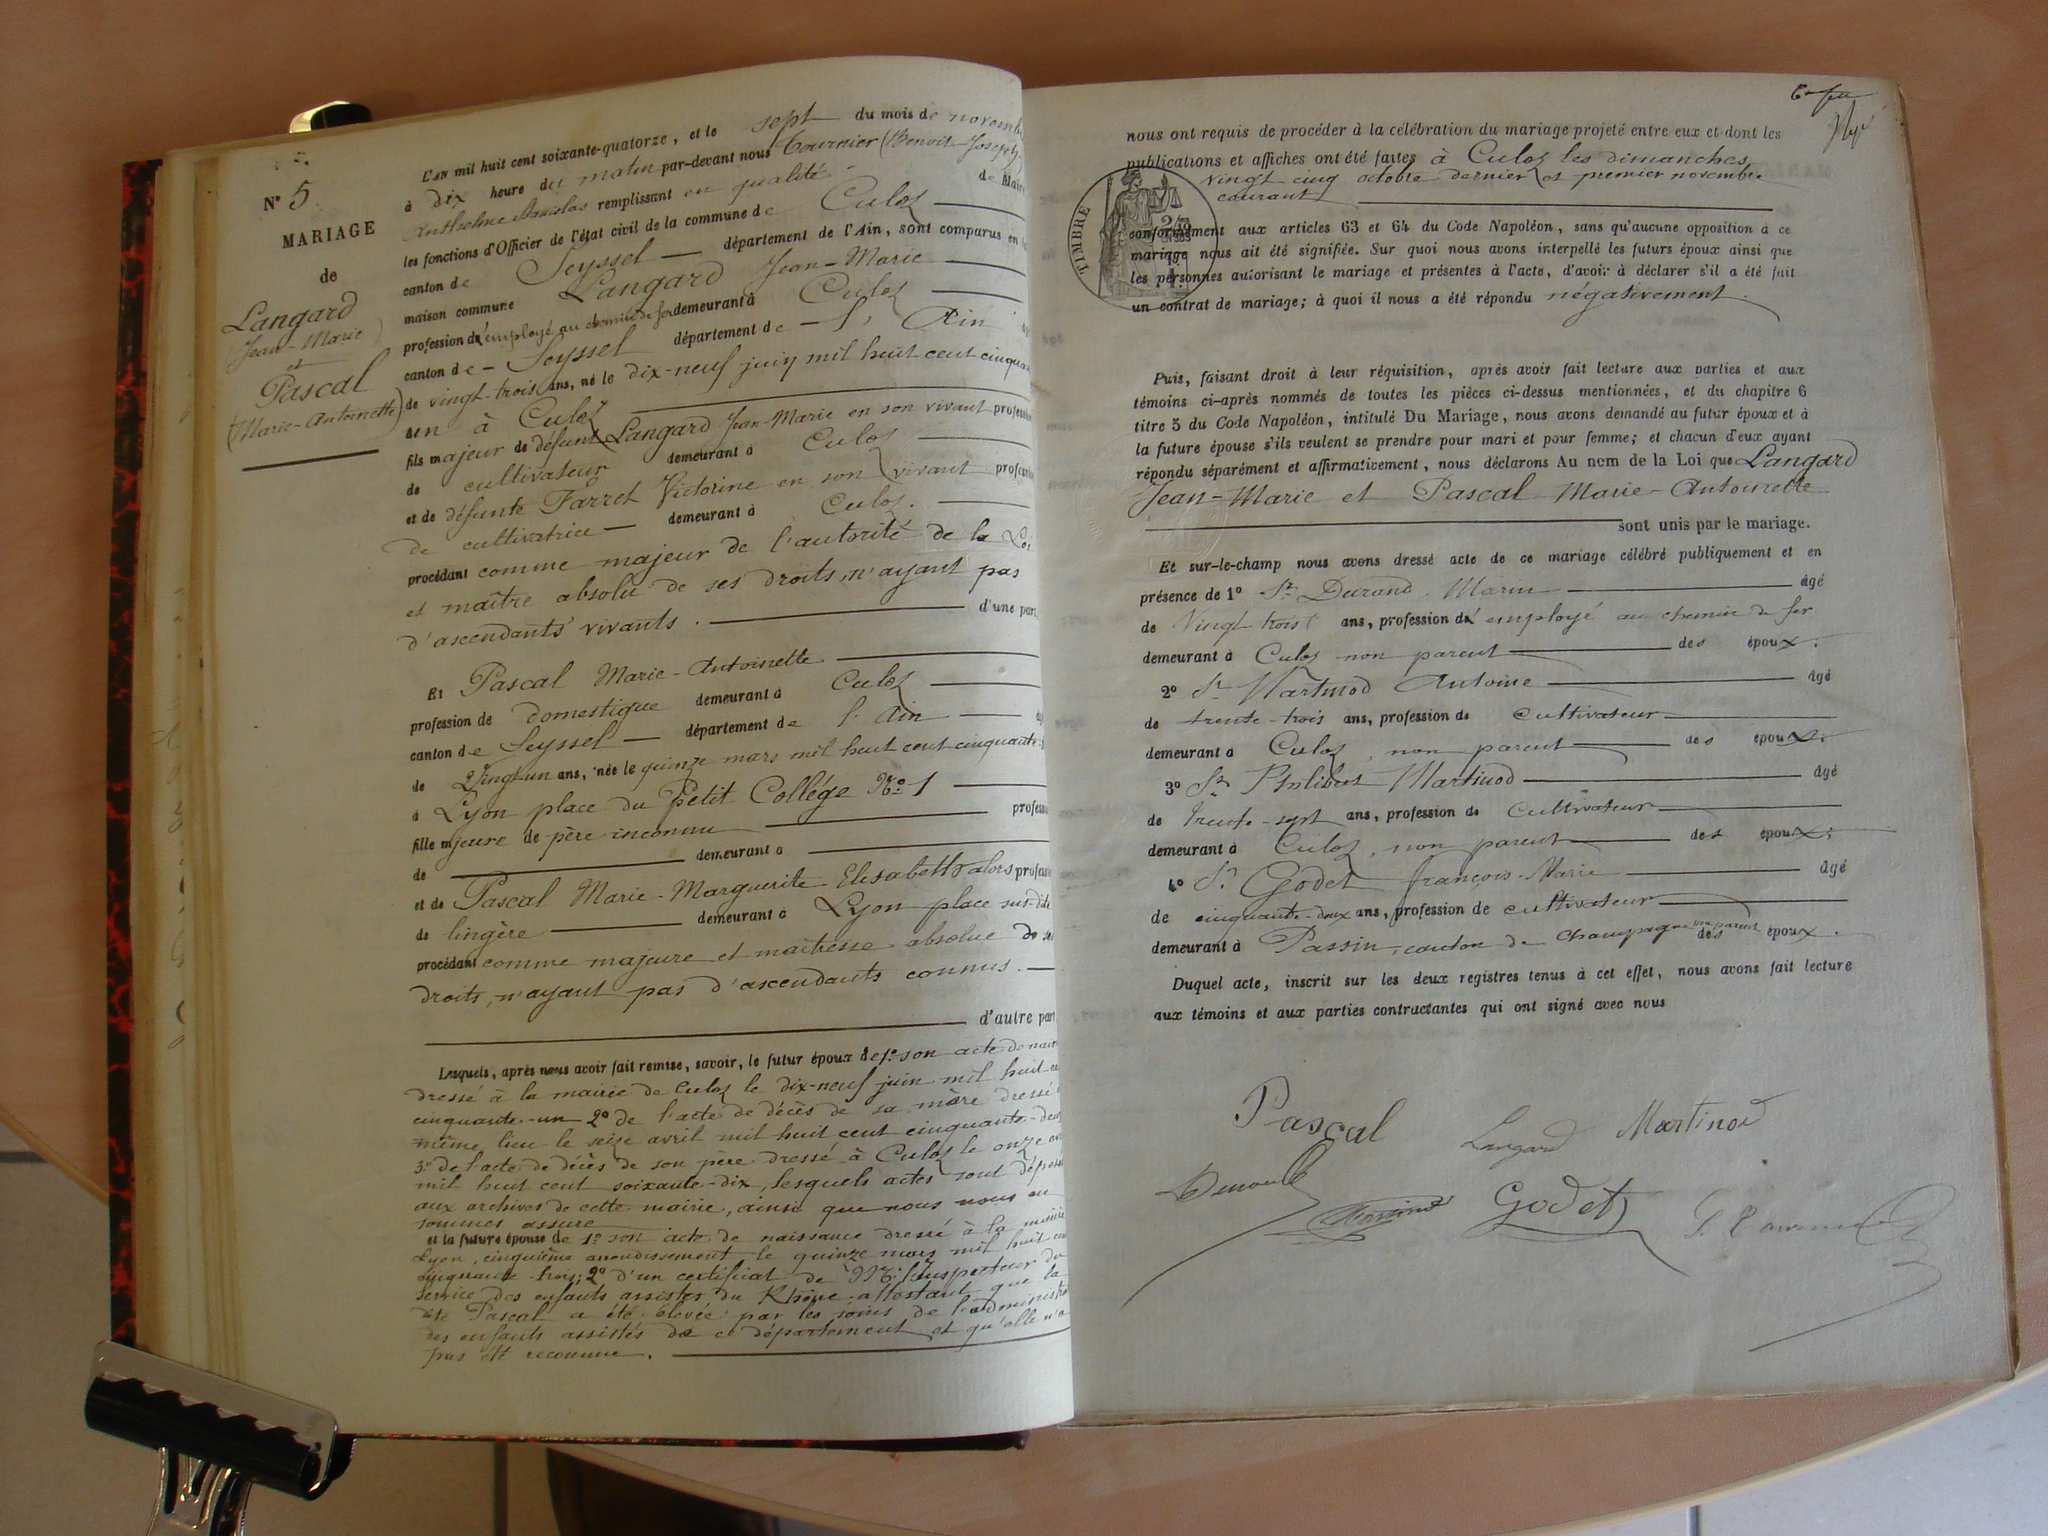 N° 5
MARIAGE
de
Langard
(Jean-Marie)
et
Pascal
(Marie-Antoinette)
L'an mil huit cent soixante-quatorze, et le sept du mois de novemb
à dix heure du matin par-devant nous Tournier (Benoit-Joseph
Anthelme Stanislas remplissant en qualité de Maire
les fonctions d'Officier de l'état civil de la commune de Culoz
canton de Seyssel département de l'Ain, sont comparus en la
maison commune Langard Jean-Marie
profession d'employé au chemin de fer demeurant à Culoz
canton de Seyssel département de l'Ain
de vingt-trois ans, né le dix-neuf juin mil huit cent cinquan
un à Culoz
fils majeur de défunt Langard Jean-Marie en son vivant profession
de cultivateur demeurant à Culoz
et de défunte Farret Victorine en son vivant profession
de cultivatrice demeurant à Culoz.
procédant comme majeur de l'autorité de la Loi
et maître absolu de ses droits, n'ayant pas
d'ascendants vivants. d'une part,
Et Pascal Marie-Antoinette
profession de domestique demeurant à Culoz
canton de Seyssel département de l'Ain
de Vingt-un ans, née le quinze mars mil huit cent cinquante
à Lyon place du Petit Collége No. 1
fille majeure de père inconnu profession
de demeurant à
et de Pascal Marie-Marguerite Elisabeth alors profession
de lingère demeurant à Lyon place sus-dite
procédant comme majeure et maîtresse absolue de ses
droits, n'ayant pas d'ascendants connus.
d'autre part
Lesquels, après nous avoir fait remise, savoir, le futur époux de 1° son acte de nais
dressé à la mairie de Culoz le dix-neuf juin mil huit cent
cinquante-un 2° de l'acte de décès de sa mère dressé
même lieu le seize avril mil huit cent cinquante-deux
3° de l'acte de décès de son père dressé à Culoz le onze
mil huit cent soixante-dix, lesquels actes sont déposés
aux archives de cette mairie, ainsi que nous nous en
sommes assuré
et la future épouse de 1° son acte de naissance dressé à la mairie
Lyon, cinquième arrondissement le quinze mars mil huit cent
cinquante-trois; 2° d'un certificat de Mr. l'Inspecteur du
service des enfants assistés du Rhône attestant que la
dite Pascal a été élevée par les soins de l'administra
des enfants assistés de ce département et qu'elle n'a
pas été reconnue.
nous ont requis de procéder à la célébration du mariage projeté entre eux et dont les
publications et affiches ont été faites à Culoz les dimanches
vingt cinq octobre dernier et premier novembre
courant
TIMBRE
conformément aux articles 63 et 64 du Code Napoléon, sans qu'aucune opposition à ce
mariage nous ait été signifiée. Sur quoi nous avons interpellé les futurs époux ainsi que
les personnes autorisant le mariage et présentes à l'acte, d'avoir à déclarer s'il a été fait
un contrat de mariage; à quoi il nous a été répondu négativement.
Puis, faisant droit à leur réquisition, après avoir fait lecture aux parties et aux
témoins ci-après nommés de toutes les pièces ci-dessus mentionnées, et du chapitre 6
titre 5 du Code Napoléon, intitulé Du Mariage, nous avons demandé au futur époux et à
la future épouse s'ils veulent se prendre pour mari et pour femme; et chacun d'eux ayant
répondu séparément et affirmativement, nous déclarons Au nom de la Loi que Langard
Jean-Marie et Pascal Marie-Antoinette
sont unis par le mariage.
Et sur-le-champ nous avons dressé acte de ce mariage célébré publiquement et en
présence de 1° Sr. Durand Marin âgé
de Vingt trois ans, profession d'employé au chemin de fer
demeurant à Culoz non parent des époux.
2° Sr. Martinod Antoine âgé
de trente-trois ans, profession de cultivateur
demeurant à Culoz, non parent des époux.
3° Sr. Philibert Martinod âgé
de trente-sept ans, profession de cultivateur
demeurant à Culoz, non parent des époux.
4° Sr. Godet françois-Marie âgé
de cinquante-deux ans, profession de cultivateur
demeurant à Passin, canton de Champagne non parent des époux.
Duquel acte, inscrit sur les deux registres tenus à cet effet, nous avons fait lecture
aux témoins et aux parties contractantes qui ont signé avec nous
Pascal Langard Martinod
Godet